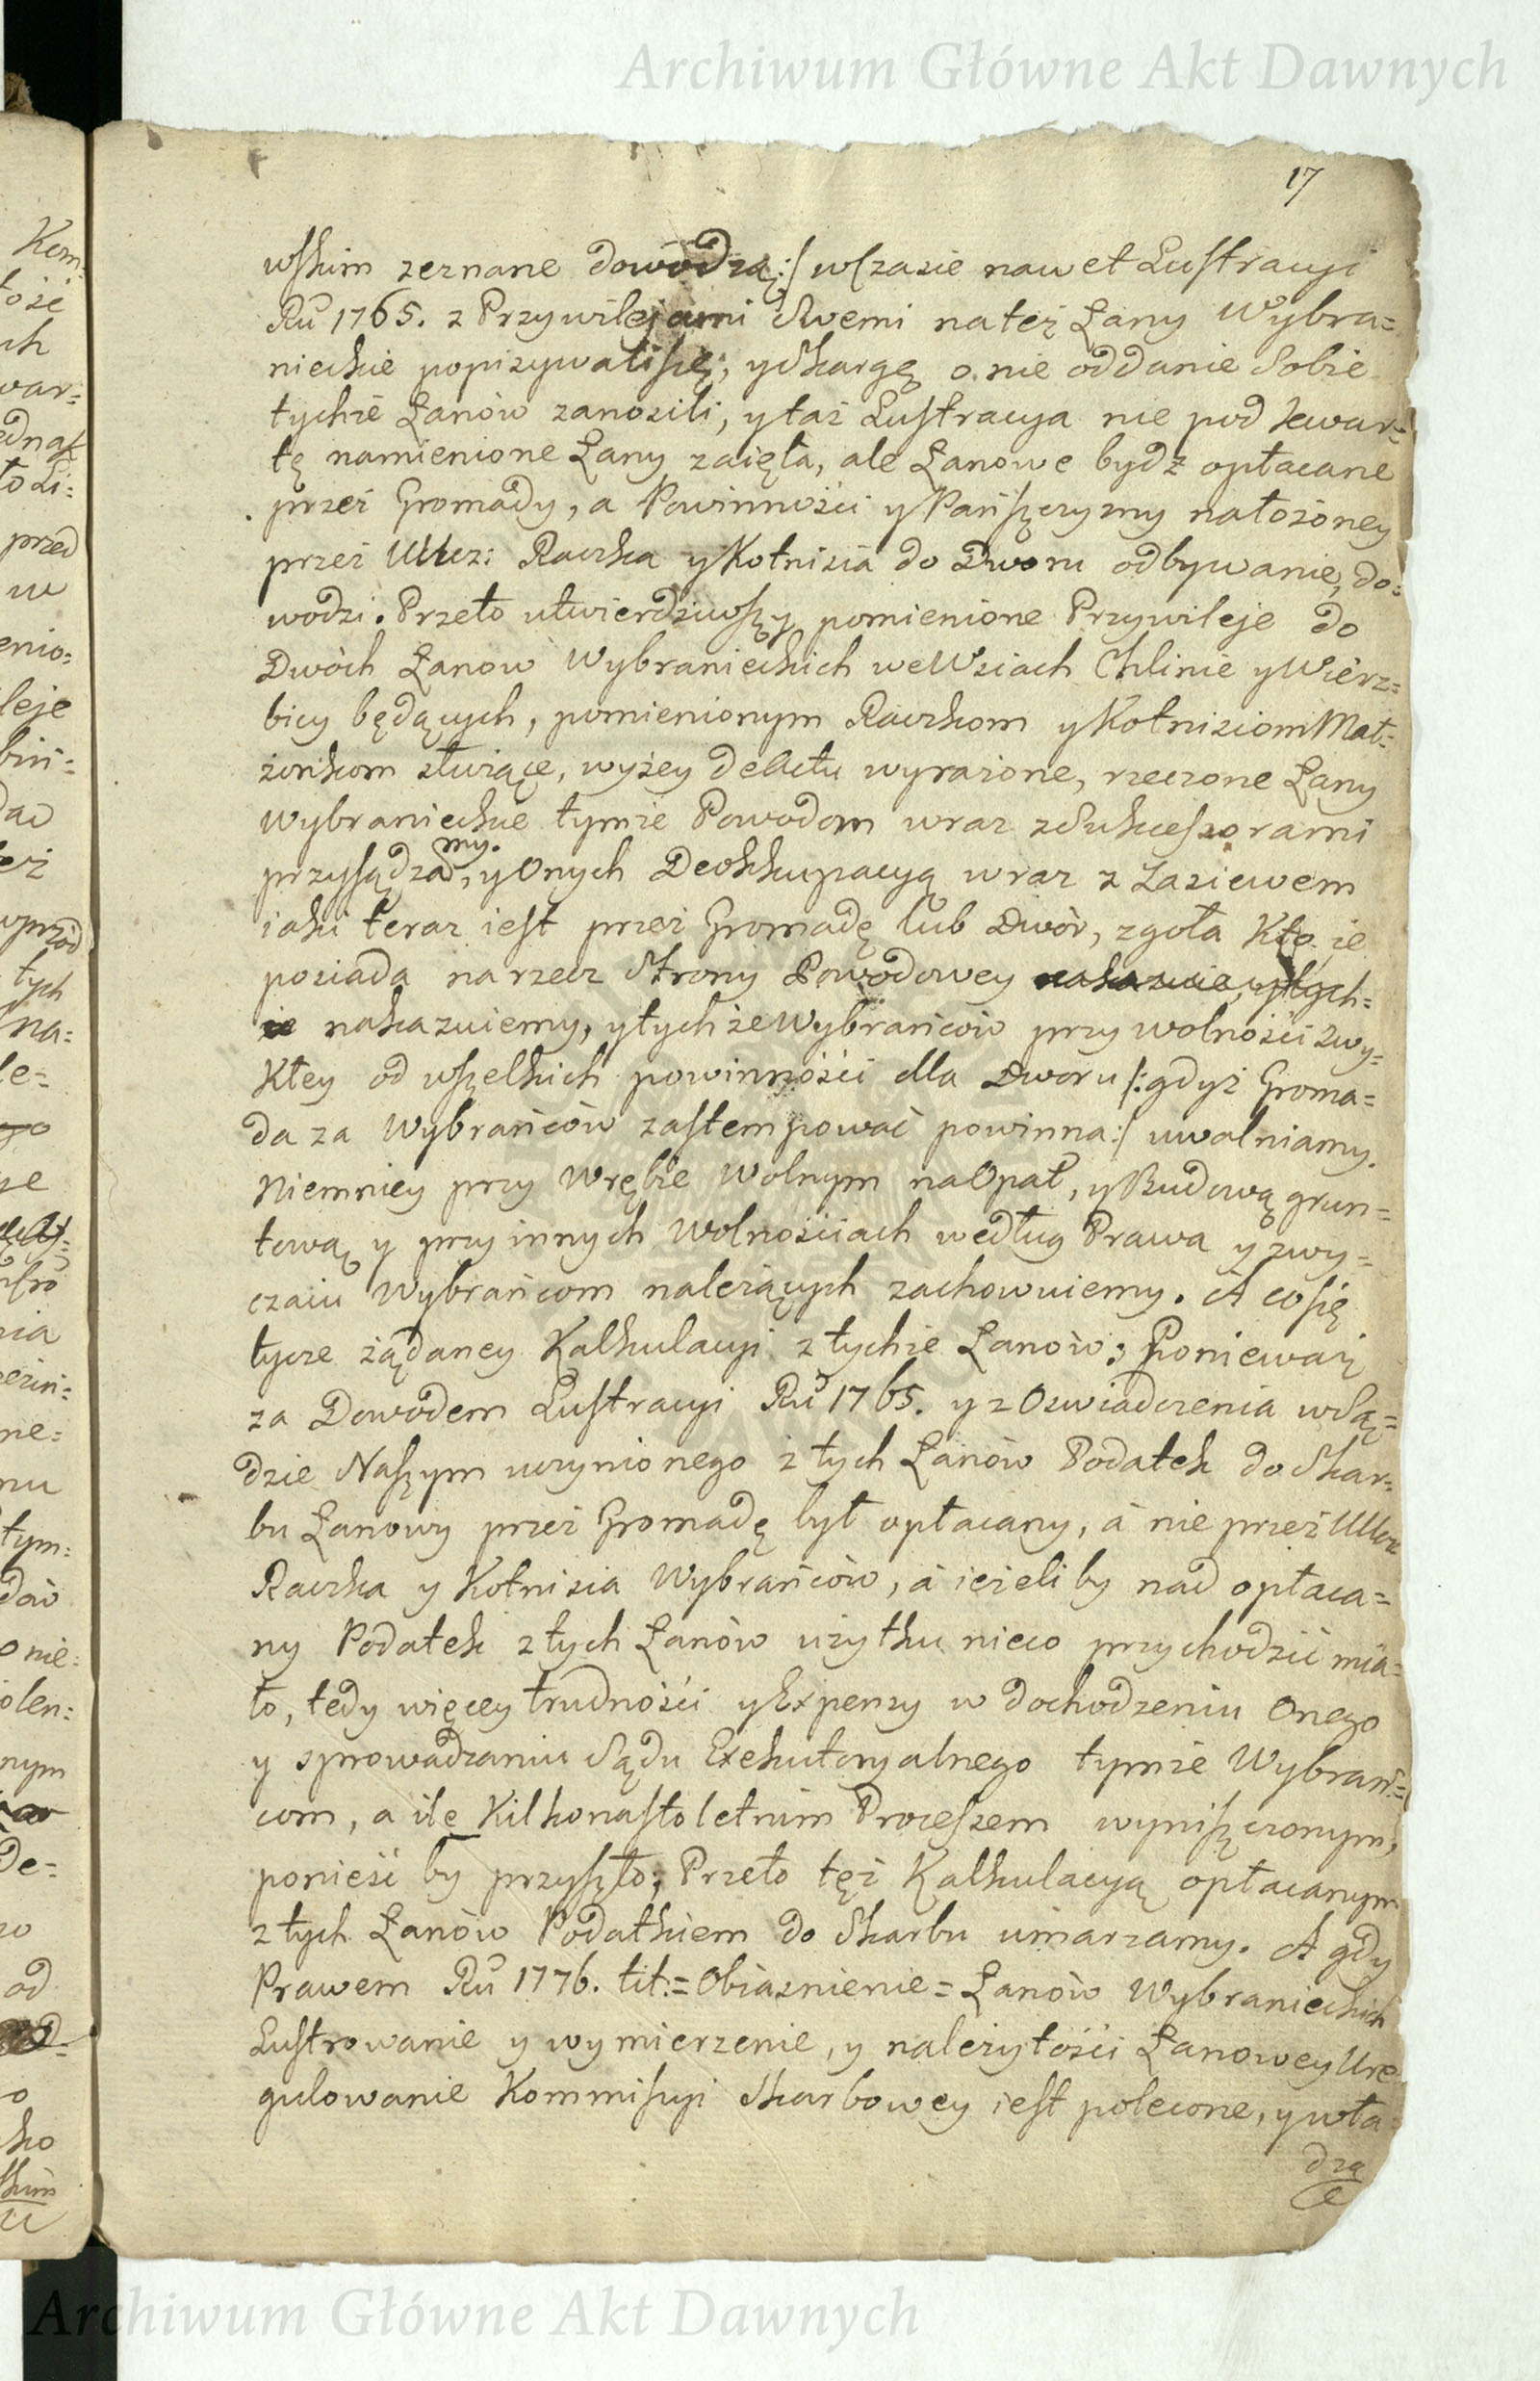 Archiwum Główne Akt Dawnych
17
wskim zeznane dowodzą:/ w czasie nawet Lustracyi
Ru 1765. z Przywilejami Swemi na też Łany Wybra=
nieckie popisywali się, y Skargę o nie oddanie Sobie
tychże Łanów zanosili, y taż Lustracya nie pod kwar=
tę namienione Łany zaięła, ale Łanowe bydź opłacane
przez Gromady, a Powinności y Pańszczyzny nałożoney
przez Uucz: Raczka y Kotnisia do Dworu odbywanie, do=
wodzi. Przeto utwierdziwszy pomienione Przywileje do
Dwóch Łanow Wybranieckich we Wsiach Chlinie y Wierz=
bicy będących, pomienionym Raczkom y Kotnisiom Mał=
żonkom służące, wyżey dekretu wyrażone, rzeczone Łany
Wybranieckie tymże Powodom wraz z Sukcessorami
przysądzamy, y Onych Deokkupacyą wraz z Zasiewem
iaki teraz iest przez Gromadę lub Dwór, zgoła Kto ie
posiada na rzecz Strony Powodowey nakazuie, y tych=
że nakazuiemy, y tychże Wybrańców przy wolności zwy=
kłey od wszelkich powinności dla Dworu /:gdyż Groma=
da za Wybrańców zastempować powinna:/ uwalniamy.
Niemniey przy Wrębie Wolnym na Opał, y Budowę grun=
tową y przy innych Wolnościach według Prawa y zwy=
czaiu Wybrańcom należących zachowuiemy. A co się
tycze żądaney Kalkulacyi z tychże Łanów; Ponieważ
za Dowodem Lustracyi Ru 1765. y z Oswiadczenia w Są=
dzie Naszym uczynionego z tych Łanów Podatek do Skar=
bu Łanowy przez Gromadę był opłacany, a nie przez Uucz
Raczka y Kotnisia Wybrańców, a ieżeliby nad opłaca=
ny Podatek z tych Łanów użytku nieco przychodzić mia=
ło, tedy więcey trudności y Expensy w dochodzeniu Onego
y sprowadzaniu Sądu Exekutoryalnego tymże Wybrań=
com, a ile Kilkonastoletnim Processem wyniszczonym,
ponieść by przyszło; Przeto też Kalkulacyą opłacanym
z tych Łanów Podatkiem do Skarbu umarzamy. A gdy
Prawem Ru 1776. tit:=Obiaśnienie= Łanów Wybranieckich
Lustrowanie y wymierzenie, y należytości Łanowey Ure
gulowanie Kommissyi Skarbowey iest polecone, y wła=
dzą
Archiwum Główne Akt Dawnych